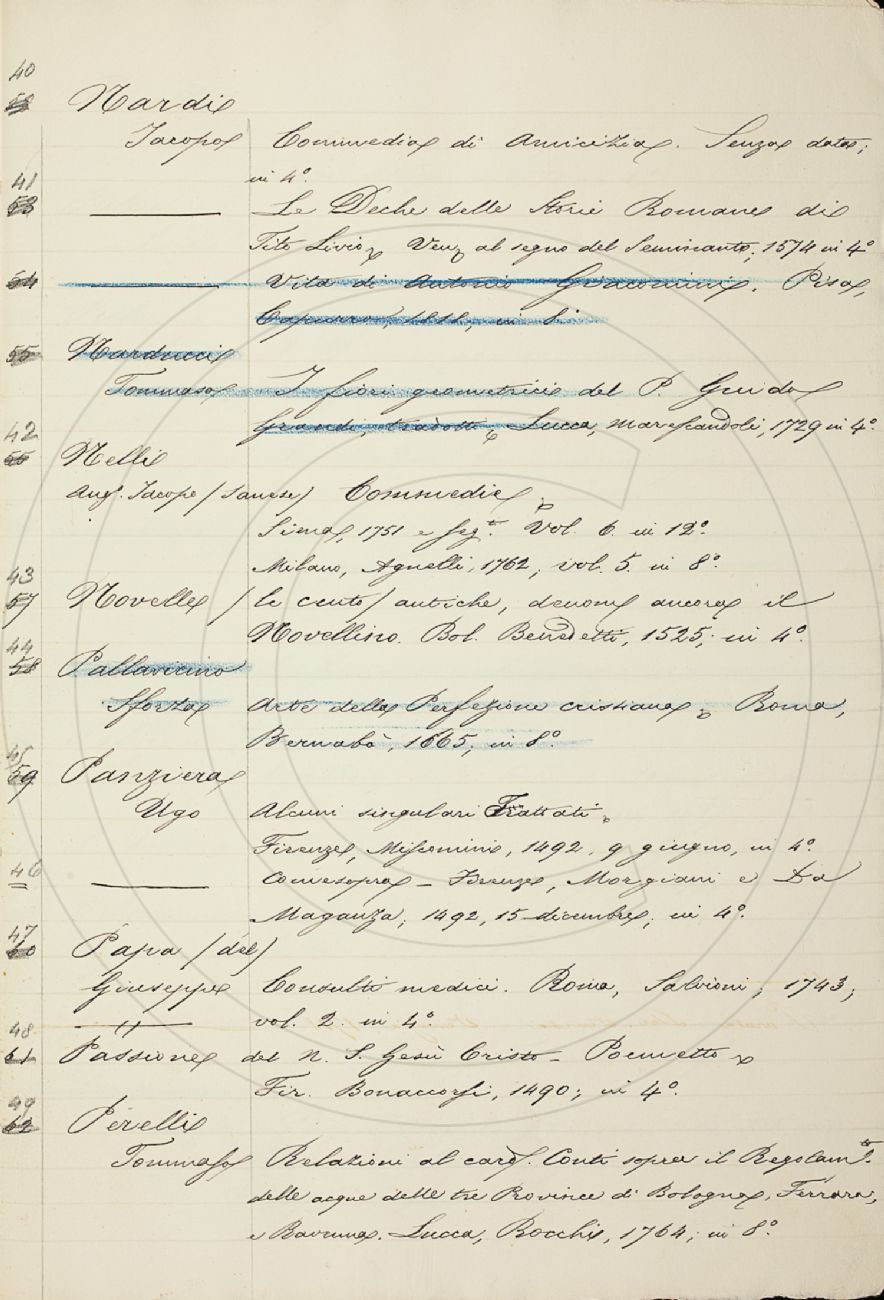 40
52 Nardi
Jacopo Commedia di Amicizia. Senza data;
in 4°.
41
53 Le Deche delle Storie Romane di
Tito Livio, Ven. al segno del Seminante; 1574 in 4°
54 Vita di Antonio Giacomini. Pisa,
Capurro, 1818; in 8.
55 Narducci
Tommaso I fiori geometrici del P. Guido
Grandi, tradotti, Lucca, Marescandoli, 1729 in 4°.
42
56 Nelli
Ang. Jacopo (Sanese) Commedie,
Siena, 1751 e seg.ti Vol. 6 in 12°.
Milano, Agnelli, 1762; vol. 5. in 8°.
43
57 Novelle (le cento) antiche, denom. ancora il
Novellino. Bol. Benedetti, 1525; in 4°.
44
58 Pallavicino
Sforza Arte della Perfezione cristiana, Roma,
Bernabò, 1665; in 8°.
45
59 Panziera
Ugo Alcuni singulari Trattati.
Firenze, Miscomini, 1492. 9 giugno, in 4°.
46 Comesopra - Firenze, Morgiani e Da
Maganza; 1492, 15 dicembre; in 4°.
47
60 Papa (del)
Giuseppe Consulti medici. Roma, Salvioni; 1743;
vol. 2. in 4°.
48
61 Passione del N. S. Gesù Cristo - Poemetto
Fir. Bonaccorsi, 1490; in 4°.
49
62 Perelli
Tommaso Relazioni al card. Conti sopra il Regolam.to
delle acque delle tre Province di Bologna, Ferrara,
e Ravenna. Lucca, Rocchi, 1764; in 8°.